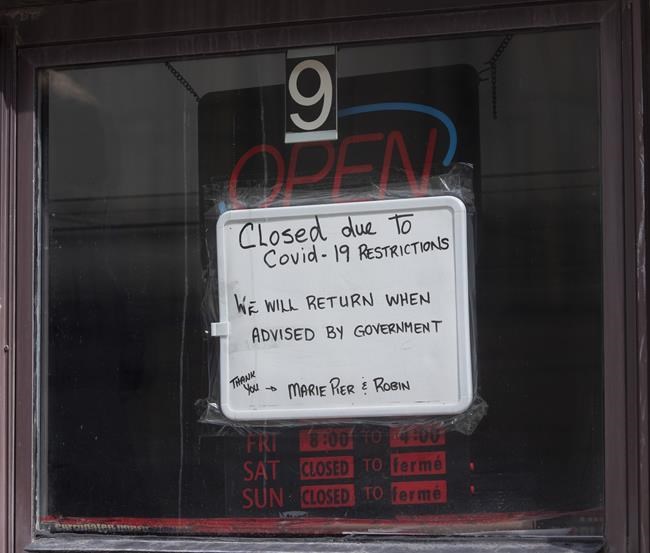 9
OPEN
Closed due To
Covid-19 RESTRICTIONS
WE WILL RETURN WHEN
ADVISED BY GOVERNMENT
THANK
YOU → MARIE PIER & ROBIN
FRI 8:00 TO 4:00
SAT CLOSED TO fermé
SUN CLOSED TO fermé